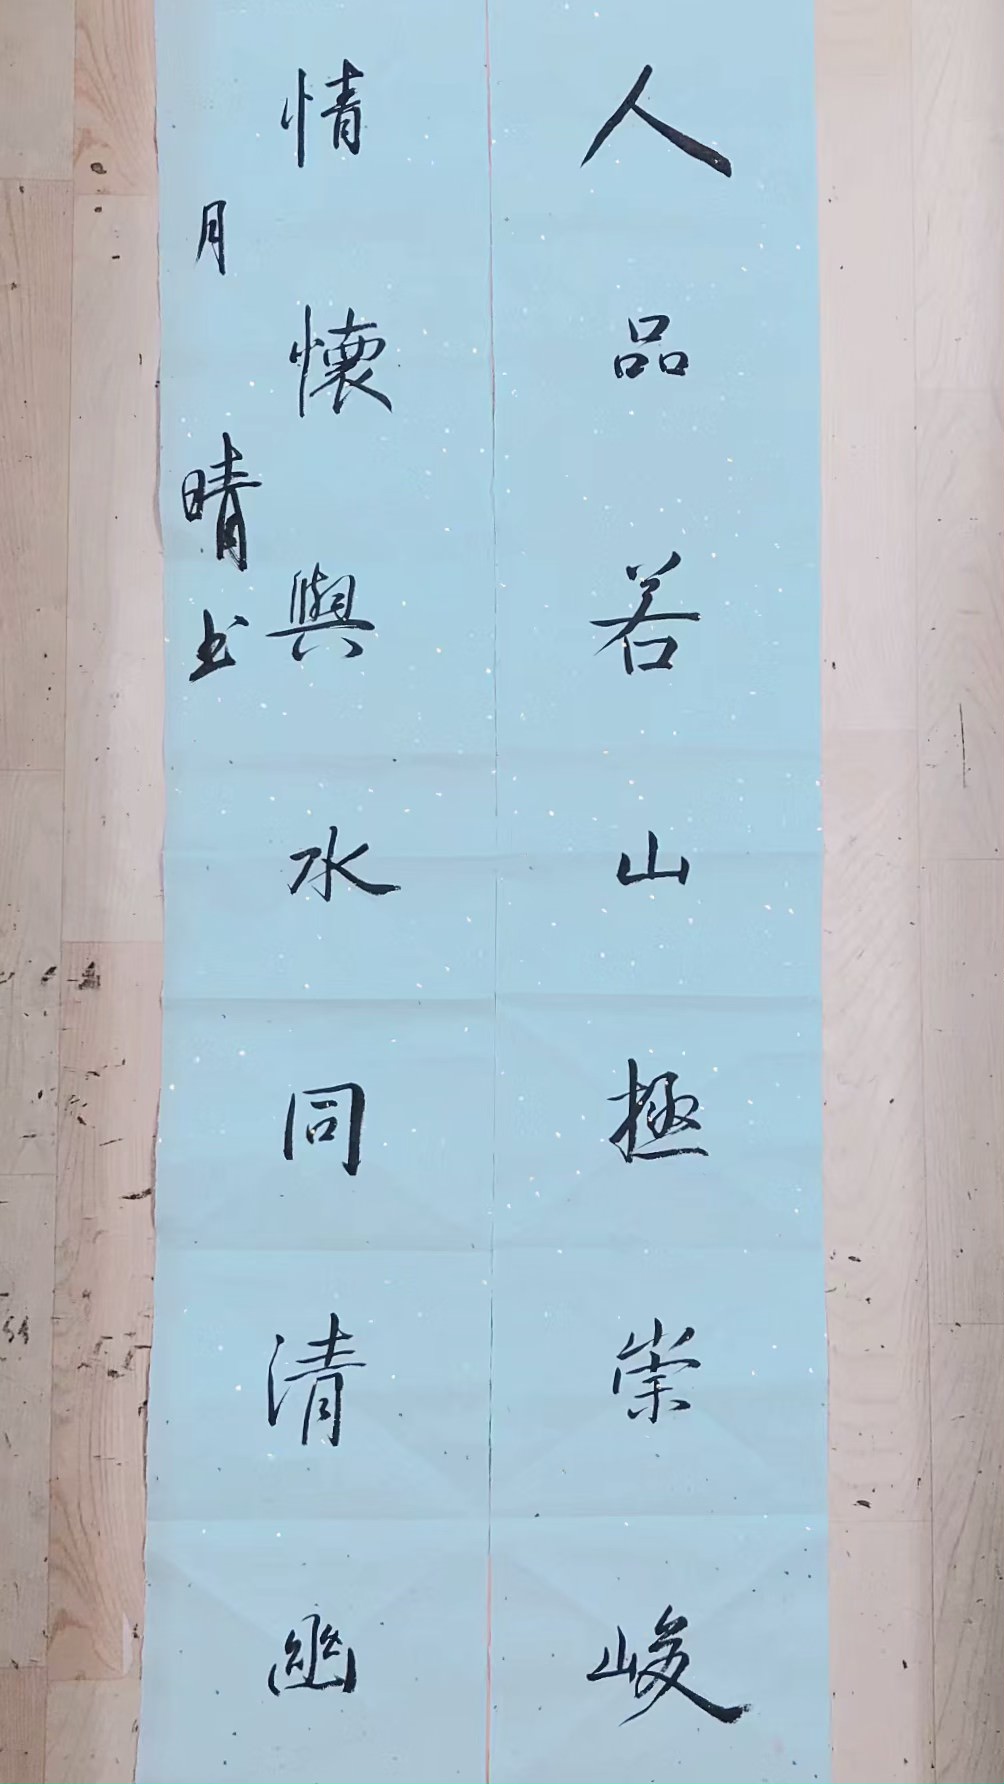 人品若山極崇峻
情懷與水同清幽
月晴书